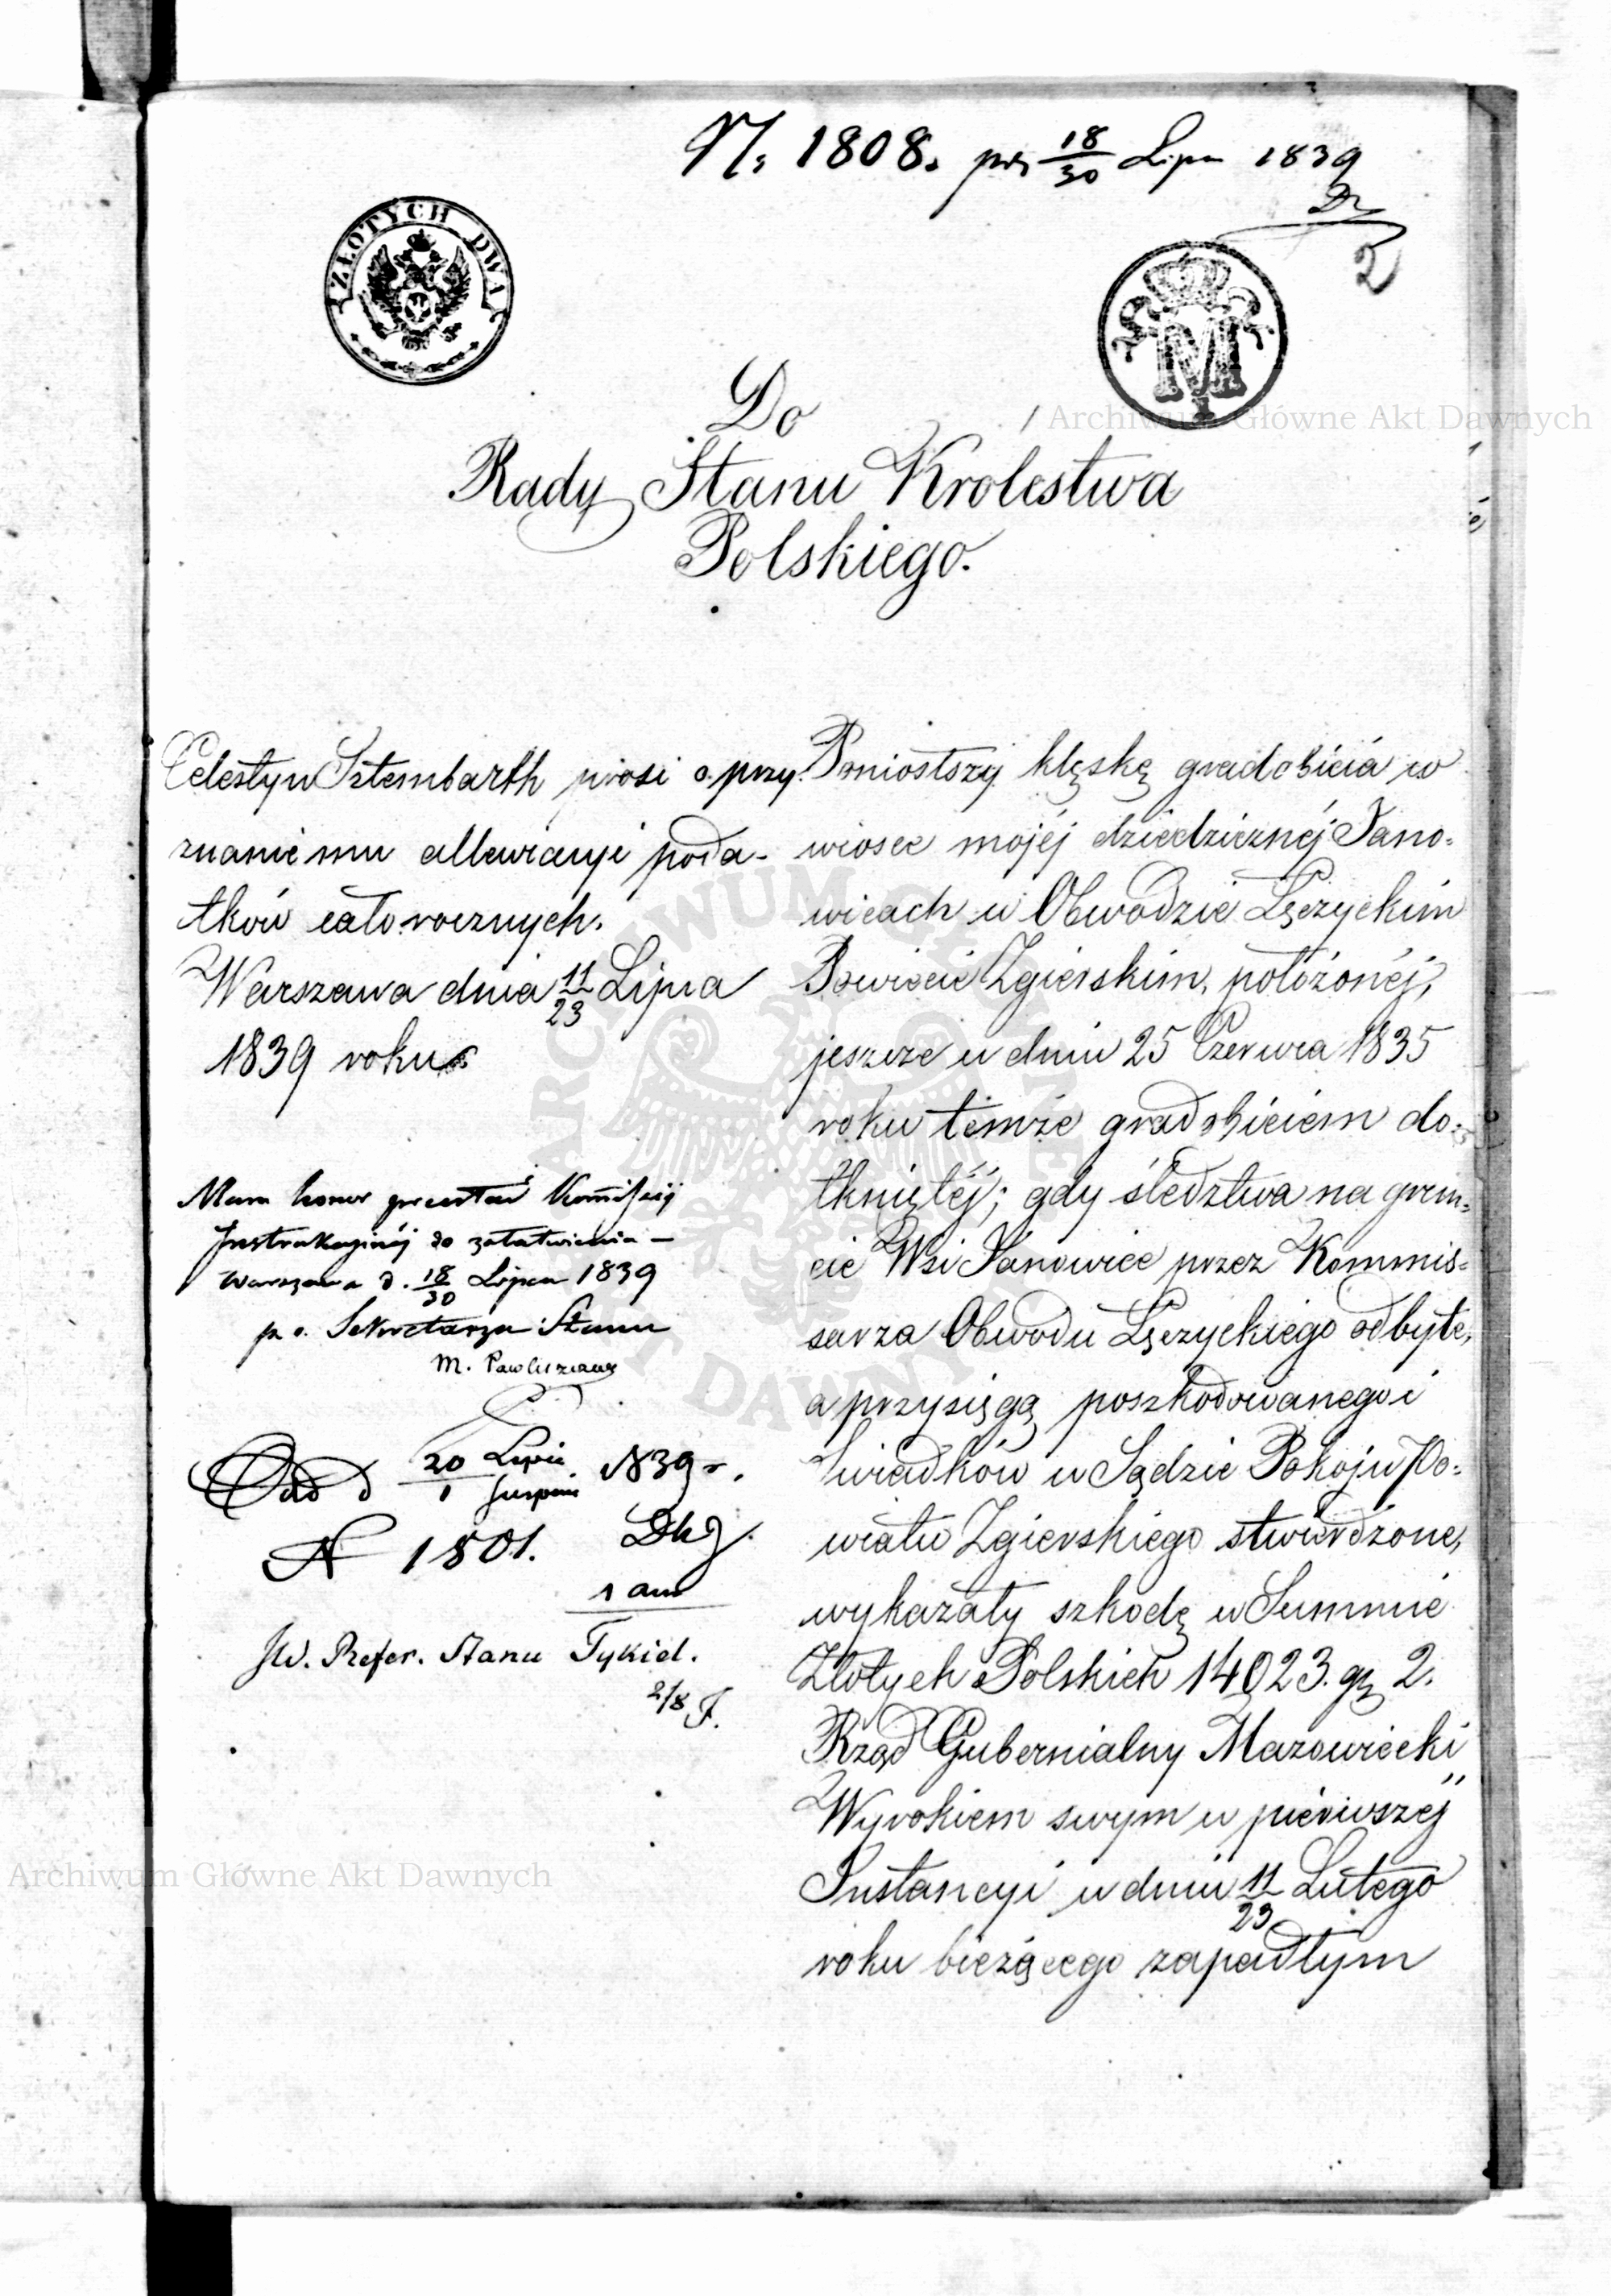 N. 1808. prz 18/30 Lipca 1839
2
ZŁOTYCH DWA
M
Do
Rady Stanu Krolestwa
Polskiego.
Celestyn Sztembarth prosi o przy-
znanie mu allewiacyi poda-
tków całorocznych.
Warszawa dnia 11/23 Lipca
1839 roku
Mam honor przesłać Kommissyi
Instrukcyinéj do załatwienia —
Warszawa d. 18/30 Lipca 1839
p. o. Sekretarza Stanu
M. Pawliszczew
Odd d 20 Lipca / 1 Sierpnia 1839 r.
N 1801.
1 ann
JW. Refer. Stanu Tykiel.
2/8
Poniósłszy klęskę gradobicia w
wiosce mojéj dziedzicznéj Jano-
wicach w Obwodzie Łęczyckim
Powiecie Zgierskim, położonéj,
jeszcze w dniu 25 Czerwca 1835
roku témże gradobiciem do-
tkniętéj; gdy śledztwa na grun-
cie Wsi Janowice przez Kommis-
sarza Obwodu Łęczyckiego odbyte,
a przysięgą poszkodowanego i
Swiadków w Sądzie Pokoju Po-
wiatu Zgierskiego stwierdzone,
wykazały szkodę w Summie
Złotych Polskich 14023. gr 2.
Rząd Gubernialny Mazowiecki
Wyrokiem swym w piérwszéj
Instancyi w dniu 11/23 Lutego
roku bieżącego zapadłym
Archiwum Główne Akt Dawnych
Archiwum Główne Akt Dawnych
ARCHIWUM GŁÓWNE AKT DAWNYCH